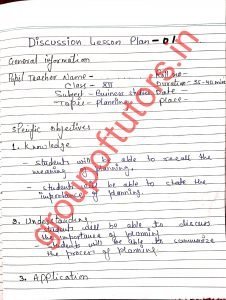 Discussion Lesson Plan - 01
General information
Pupil Teacher Name - Roll no -
Class - XII Duration - 35-40 min
Subject - Business studies Date -
Topic - Planning Place -
Specific Objectives
1. Knowledge
- students will be able to recall the
meaning of planning.
students will be able to state the
importance of planning.
2. Understanding
students will be able to discuss
the importance of planning
students will be able to summarize
the process of planning.
3. Application
groupoftutors.in